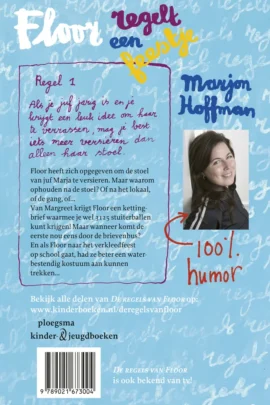 Floor regelt
een
feestje
Marjon
Hoffman
Regel 1
Als je juf jarig is en je
krijgt een leuk idee om haar
te verrassen, mag je best
iets meer versieren dan
alleen haar stoel.
Floor heeft zich opgegeven om de stoel
van juf Marja te versieren. Maar waarom
ophouden na de stoel? Of na het lokaal,
of de gang, of...
Van Margreet krijgt Floor een ketting-
brief waarmee je wel 1323 stuiterballen
kunt krijgen! Maar wanneer komt de
eerste nou eens door de brievenbus?
En als Floor naar het verkleedfeest
op school gaat, had ze beter een water-
bestendig kostuum aan kunnen
trekken...
100%
humor
Bekijk alle delen van De regels van Floor op:
www.kinderboeken.nl/deregelsvanfloor
ploegsma
kinder- & jeugdboeken
De regels van Floor
is ook bekend van tv!
9789021673004